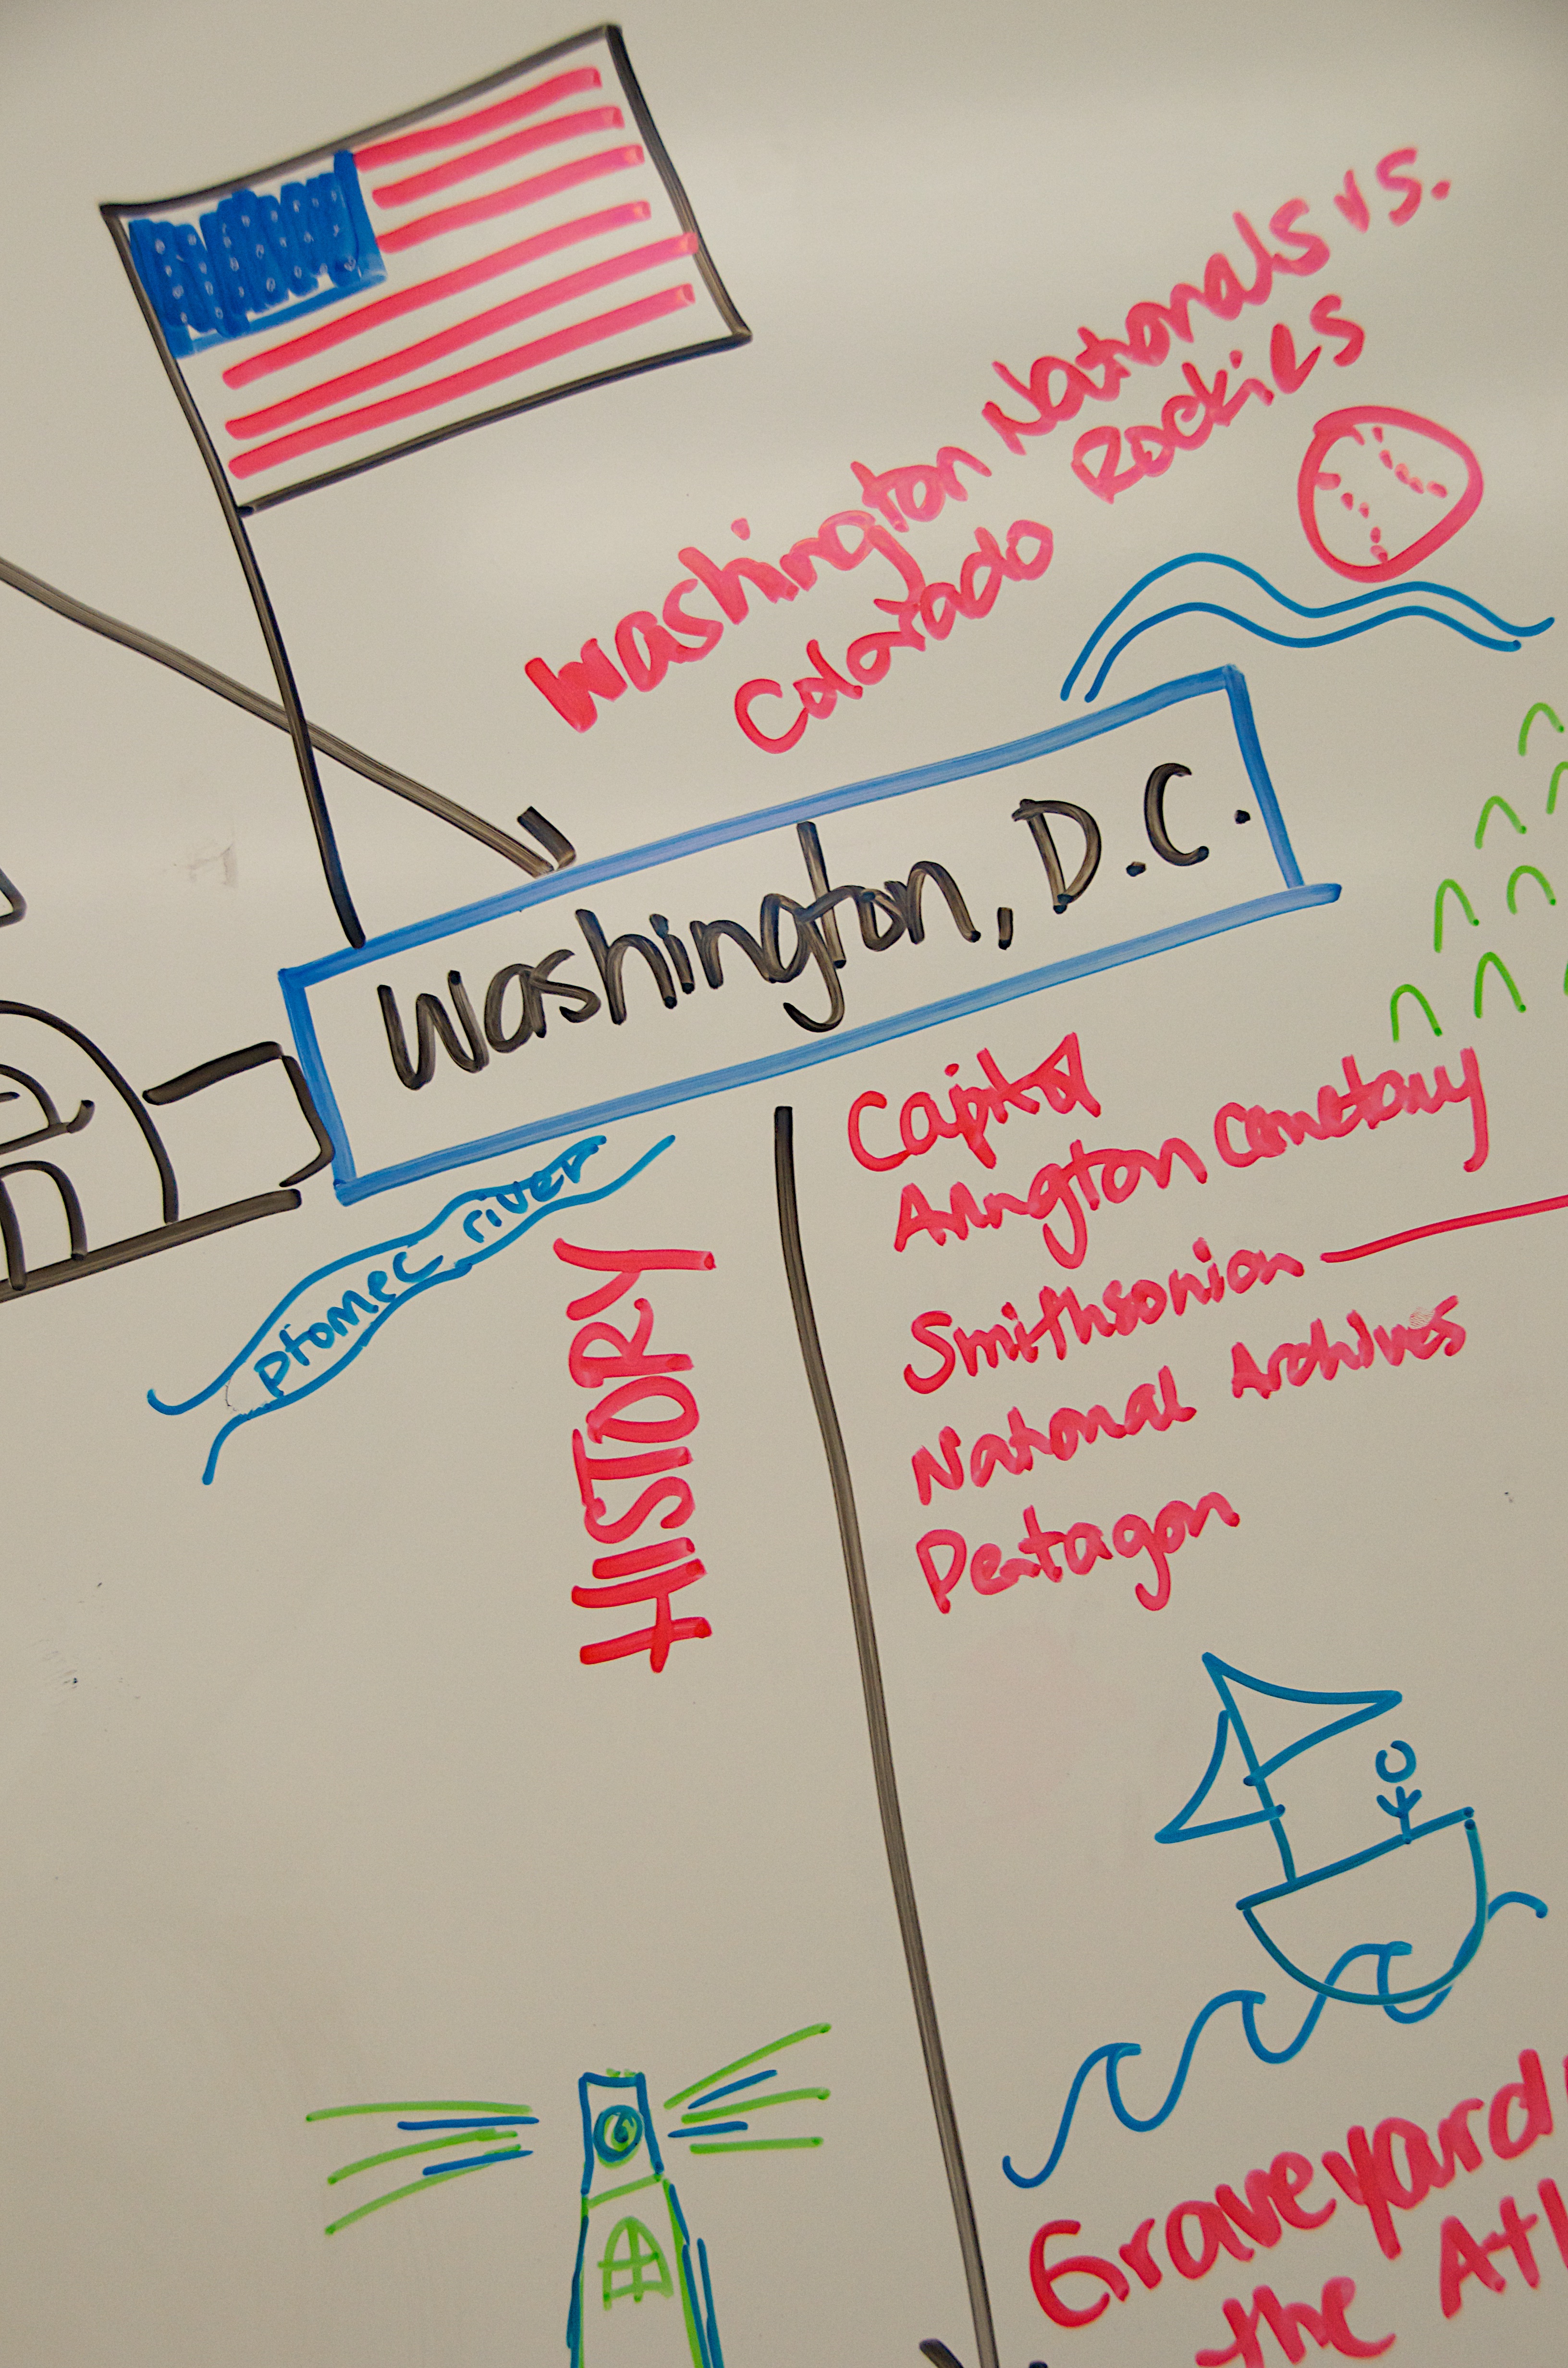 Washington Nationals vs.
Colorado Rockies
Washington, D.C.
ptomec river
HISTORY
Capitol
Arlington Cemetary
Smithsonian
National Archives
Pentagon
Graveyard
the Atl